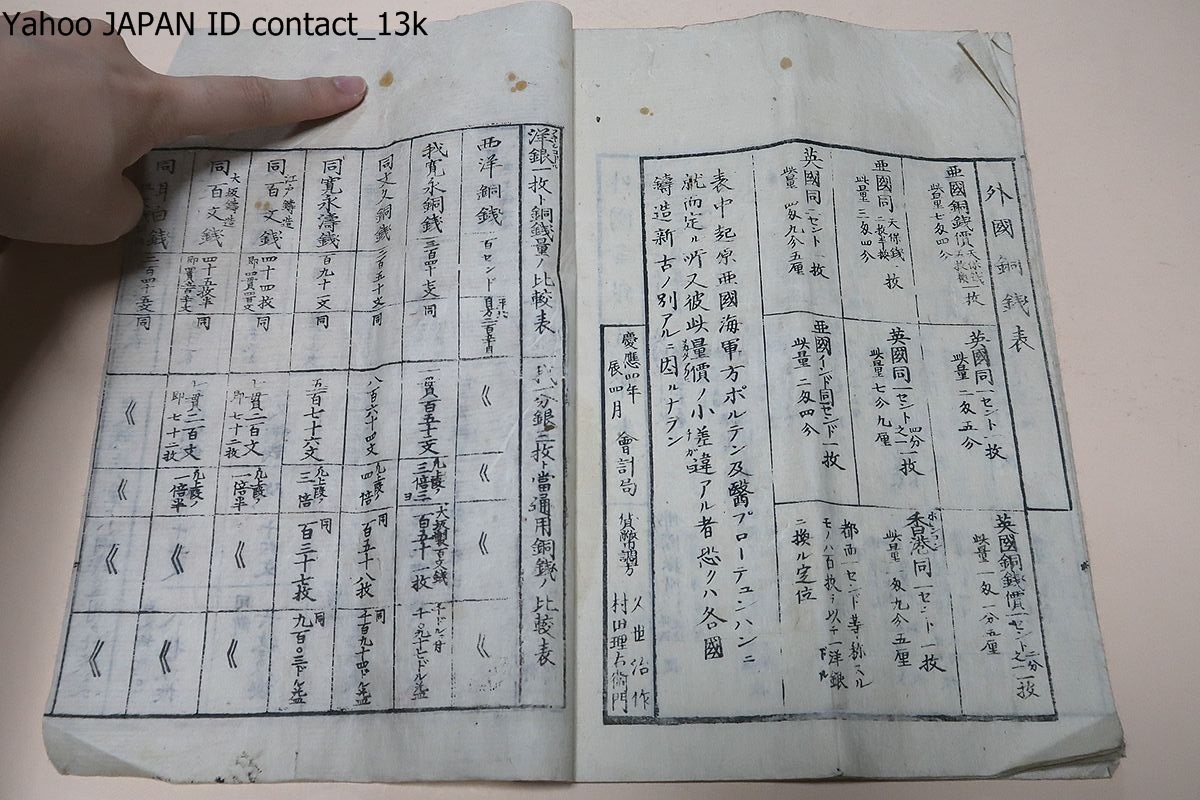 Yahoo JAPAN ID contact_13k
外國銅錢表
亜國銅錢價 天保錢 枚
此量七匁四分
英國同一セント一枚
此量二匁五分
英國銅錢價一セント二分之一一枚
此量一匁一分五厘
亜國同 天保錢 枚
此量三匁四分
英國同一セント四分之一一枚
此量七分九厘
香港同一セント一枚
此量一匁九分五厘
英國同一セント一枚
此量四匁九分五厘
亜國インド同一セント一枚
此量二匁四分
都而一セント等称スル
モノハ百枚ヲ以テ一洋銀
ニ換ル定位
表中起原亜國海軍方ポルテン及醫プローテュンハンニ
就而定ル所又彼此量價ノ小差違アル者恐クハ各國
鑄造新古ノ別アルニ因ルナラン
慶應四年
辰四月
會計局
貨幣調方
久世治作
村田理右衛門
洋銀一枚ト銅錢量ノ比較表
我一分銀三枚ト當通用銅錢ノ比較表
西洋銅錢
百センド
我寛永銅錢
三百四十七文
同
一貫百五十二文
大坂製百文錢
百五十一枚
同文久銅錢
二百五十文
同
八百六十四文
四倍
同
百五十八枚
同寛永濤錢
百九十二文
同
五百七十六文
三倍
同
百三十七枚
江戸鑄造
同百文錢
四十四枚
同
一貫二百文
即七十二枚
一倍半
大坂鑄造
同百文錢
四十五枚半
同
一貫二百文
即七十二枚
一倍半
同耳白錢
二百四十五文
同